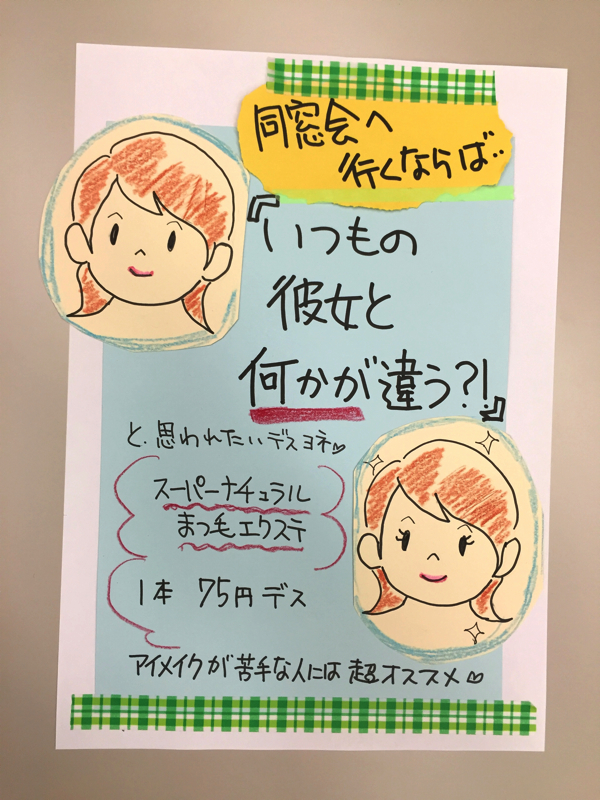 同窓会へ
行くならば‥
『いつもの
彼女と
何かが違う?!』
と、思われたいデスヨネ♡
スーパーナチュラル
まつ毛エクステ
1本 75円デス
アイメイクが苦手な人には超オススメ♡